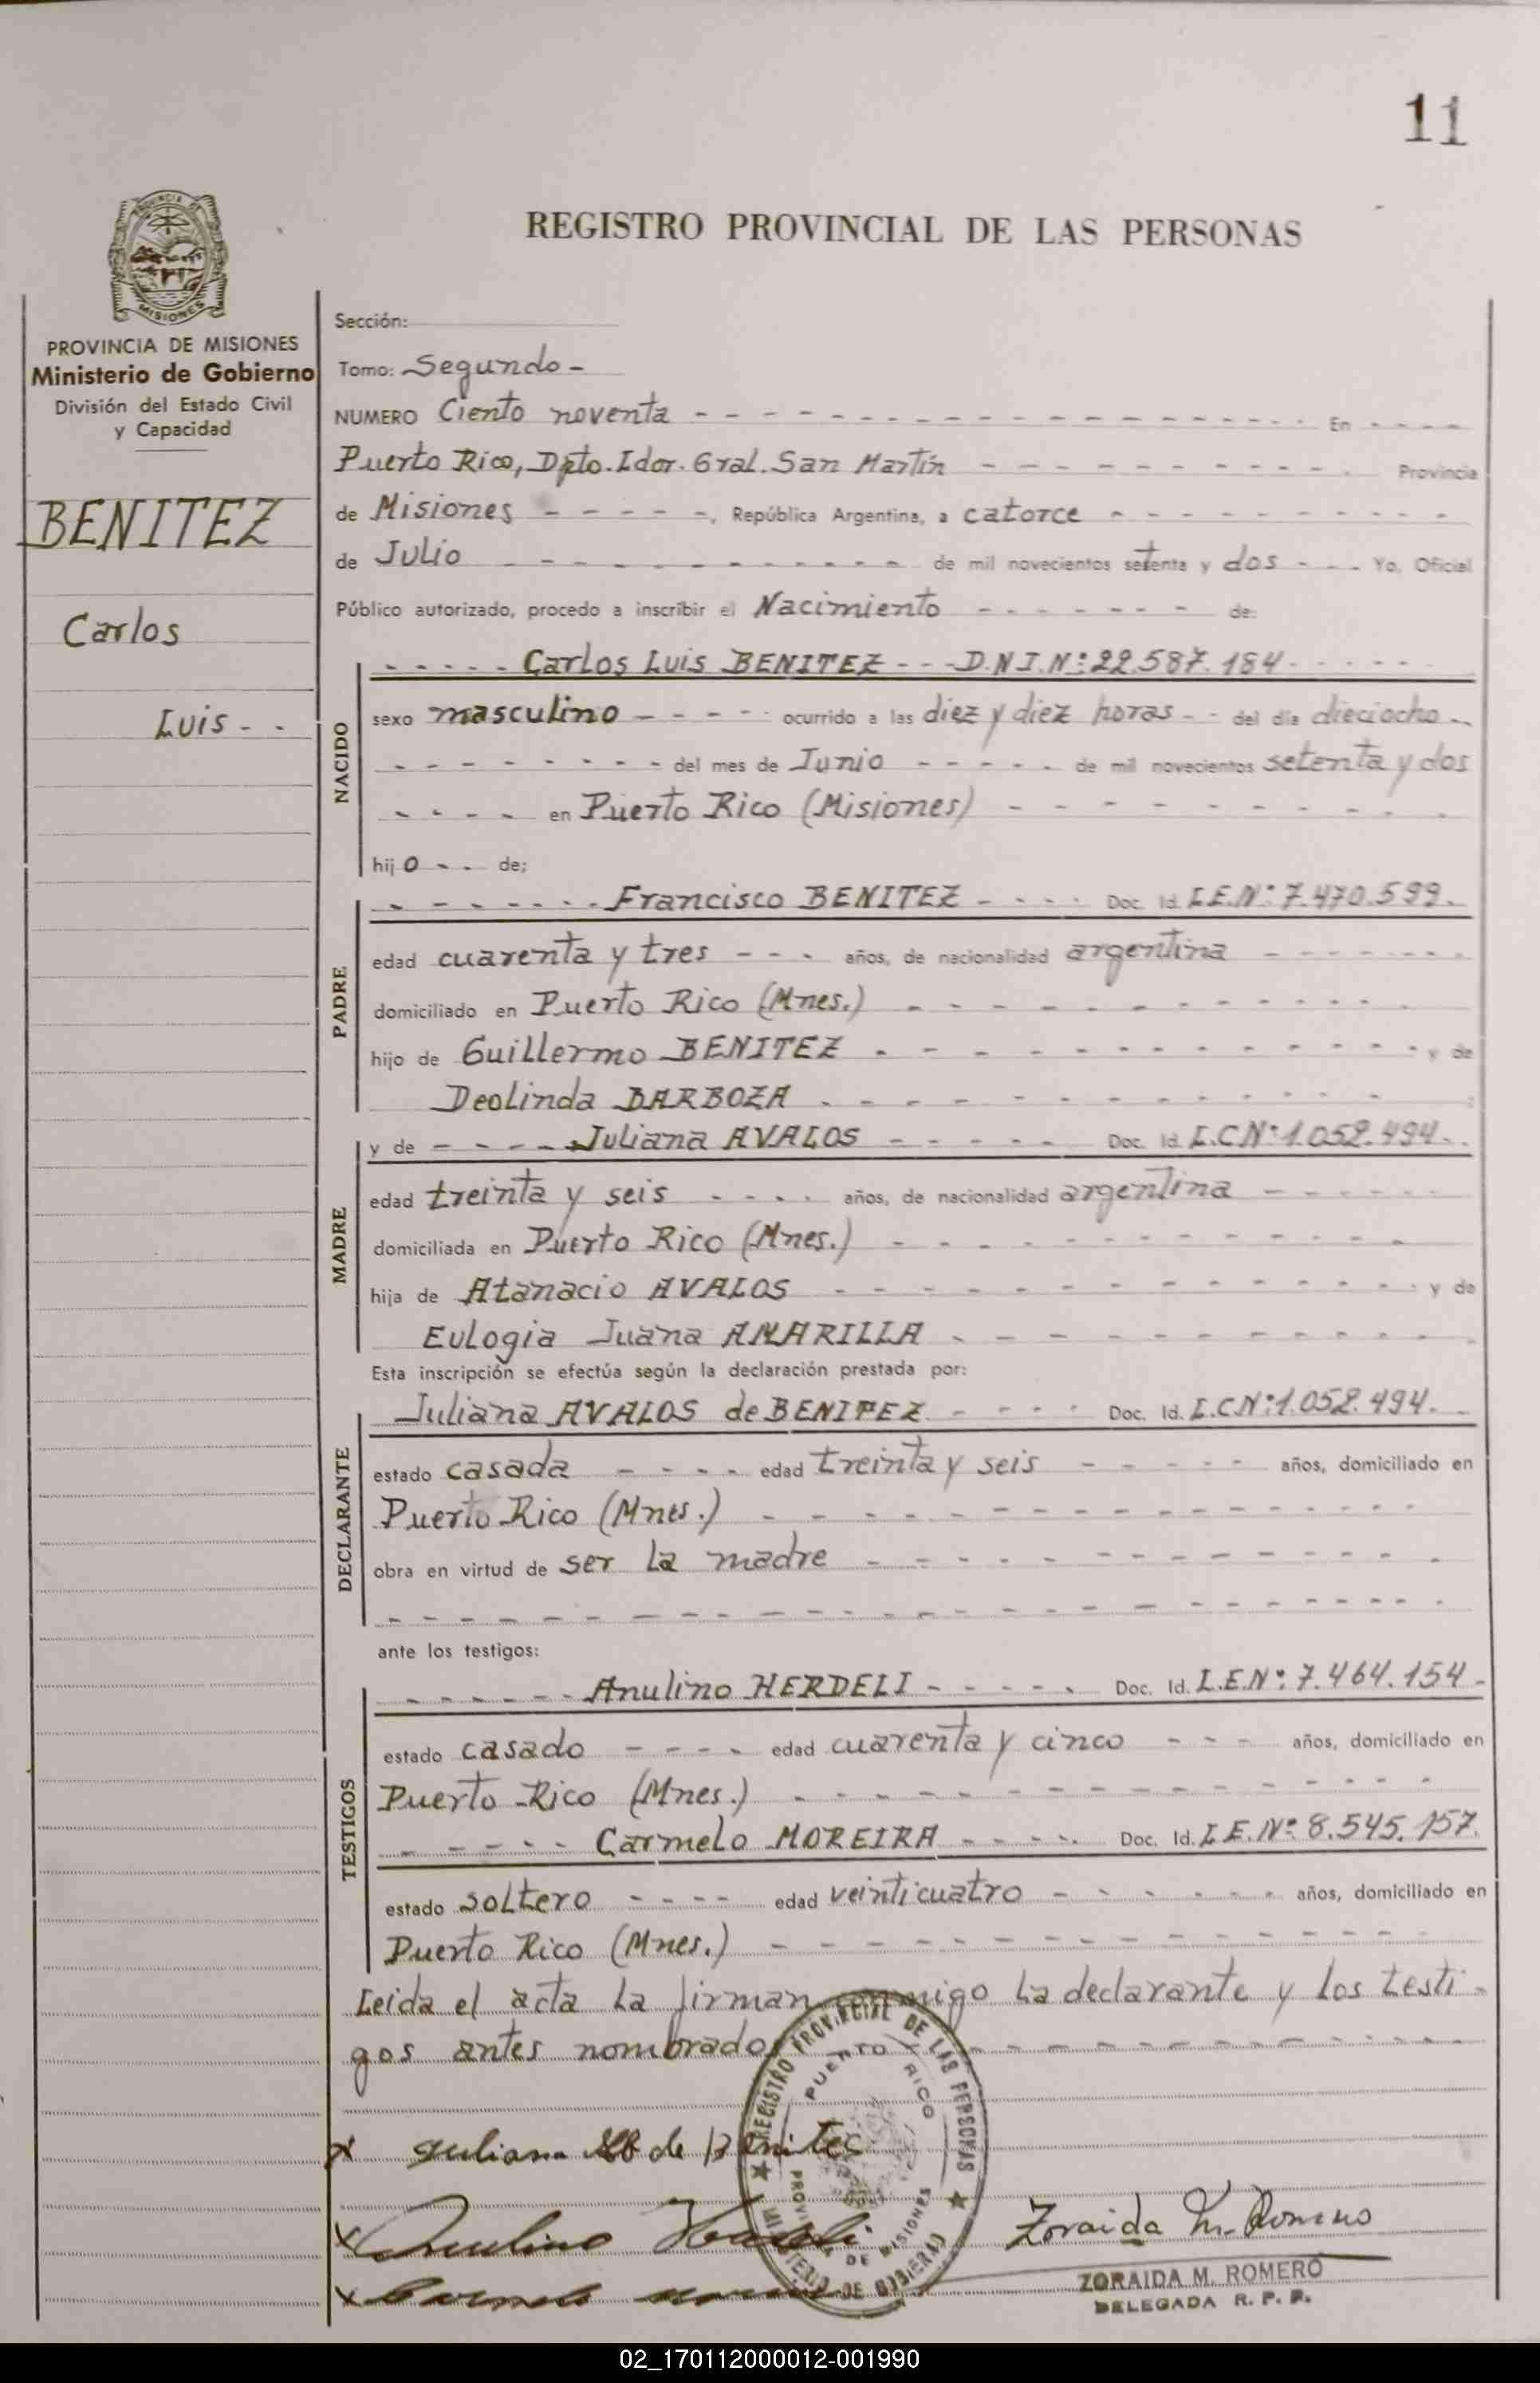 11
REGISTRO PROVINCIAL DE LAS PERSONAS
PROVINCIA DE MISIONES
Ministerio de Gobierno
División del Estado Civil
y Capacidad
BENITEZ
Carlos
Luis - -
Sección:
Tomo: Segundo -
NUMERO Ciento noventa - - - En - - - -
Puerto Rico, Dpto. Ldor. Gral. San Martín - - - Provincia
de Misiones - - - - -, República Argentina, a catorce - - -
de Julio - - - de mil novecientos setenta y dos - - - Yo, Oficial
Público autorizado, procedo a inscribir el Nacimiento - - - de:
NACIDO
- - - - - Carlos Luis BENITEZ - - - D.N.I.Nº: 22.587.184 - - -
sexo masculino - - - - - ocurrido a las diez y diez horas - - del día dieciocho - -
- - - del mes de Junio - - - - - de mil novecientos setenta y dos
- - - - en Puerto Rico (Misiones) - - -
hijo - - de;
PADRE
- - - Francisco BENITEZ - - - - Doc. Id. L.E.Nº: 7.470.599.
edad cuarenta y tres - - - años, de nacionalidad argentina - - -
domiciliado en Puerto Rico (Mnes.) - - -
hijo de Guillermo BENITEZ - - - y de
Deolinda BARBOZA - - -
MADRE
y de - - - - Juliana AVALOS - - - - - Doc. Id. L.C.Nº: 1.052.494. -
edad treinta y seis - - - - años, de nacionalidad argentina - - -
domiciliada en Puerto Rico (Mnes.) - - -
hija de Atanacio AVALOS - - - y de
Eulogia Juana AMARILLA - - -
Esta inscripción se efectúa según la declaración prestada por:
DECLARANTE
Juliana AVALOS de BENITEZ - - - - Doc. Id. L.C.Nº: 1.052.494. -
estado casada - - - - edad treinta y seis - - - - - años, domiciliado en
Puerto Rico (Mnes.) - - -
obra en virtud de ser la madre - - -
ante los testigos:
TESTIGOS
- - - Anulino HERDELI - - - - - Doc. Id. L.E.Nº: 7.464.154 -
estado casado - - - - edad cuarenta y cinco - - - años, domiciliado en
Puerto Rico (Mnes.) - - -
- - - - Carmelo MOREIRA - - - - - Doc. Id. L.E.Nº: 8.545.157.
estado soltero - - - - edad veinticuatro - - - años, domiciliado en
Puerto Rico (Mnes.) - - -
Leida el acta la firman conmigo la declarante y los testi-
gos antes nombrados - - -
REGISTRO PROVINCIAL DE LAS PERSONAS
PUERTO RICO
PROVINCIA DE MISIONES
MINISTERIO DE GOBIERNO
x Juliana de Benitez
x Anulino Herdeli
x Carmelo
Zoraida M. Romero
ZORAIDA M. ROMERO
DELEGADA R. P. P.
02_170112000012-001990